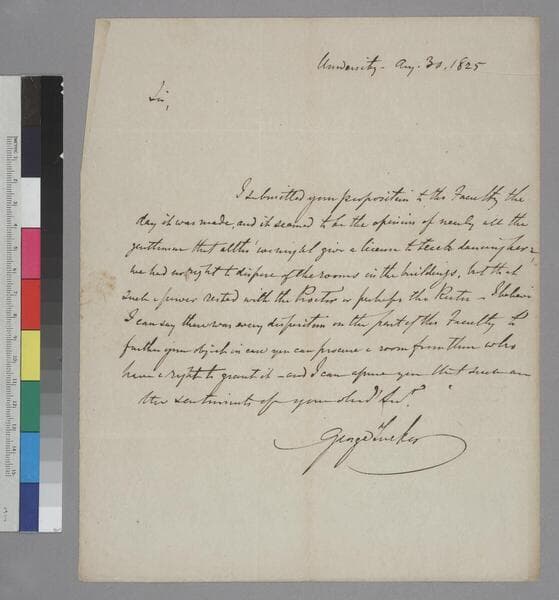 University. Aug. 30. 1825
Sir,
I submitted your proposition to the Faculty the
day it was made, and it seemed to be the opinion of nearly all the
gentlemen that altho' we might give a license to teach dancing here,
we had no right to dispose of the rooms in the buildings, but that
such a power rested with the Proctor or perhaps the Rector - I believe
I can say there was every disposition on the part of the Faculty to
further your object in case you can procure a room from them who
have a right to grant it - and I can assure you that such are
the sentiments of your obed.t Serv.t
George Tucker